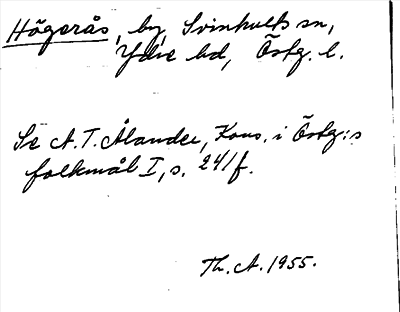 Högerås, by, Svinhults sn,
Ydre hd, Östg. l.
Se A. T. Ålander, Kons. i Östg:s
folkmål I, s. 241 f.
Th. A. 1955.